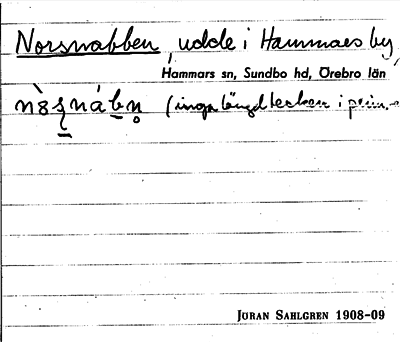 Norsnabben, udde i Hammars by,
Hammars sn, Sundbo hd, Örebro län
(inga längdtecken i prim.-
JÖRAN SAHLGREN 1908-09